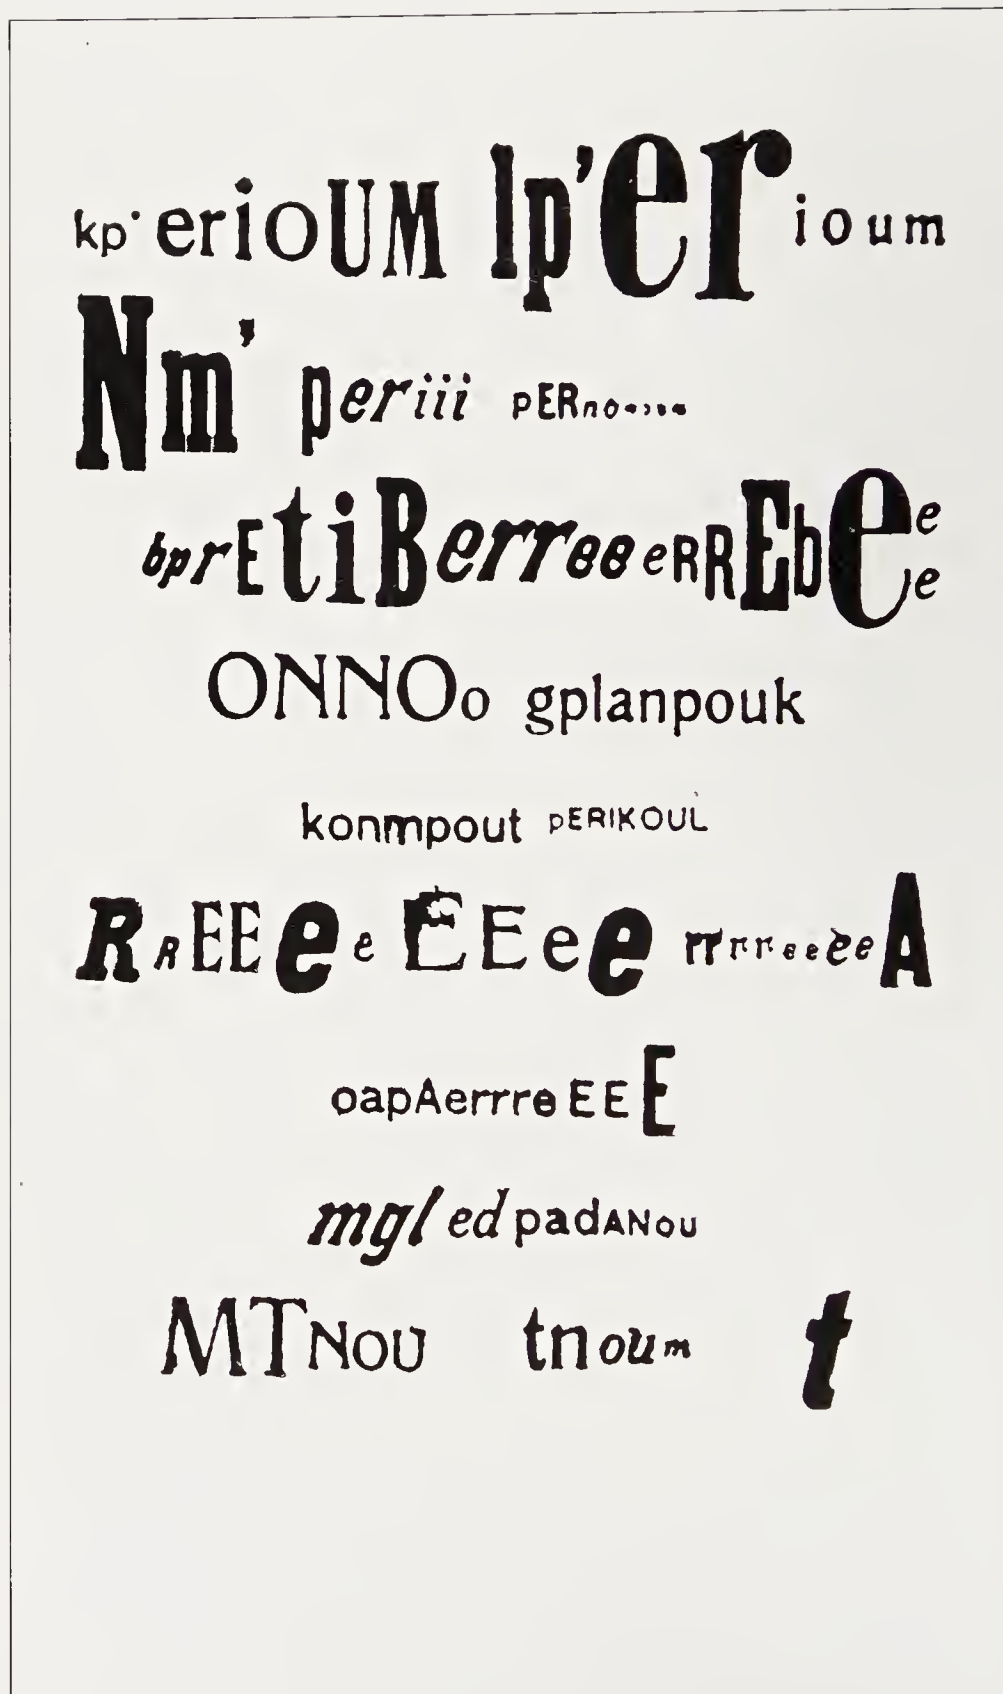 kp' erioUM lp'er ioum
Nm' periii pERno·,··
bprEtiBerreeeRREbeee
ONNOo gplanpouk
konmpout pERIKOUL
RrEEee EEee rrrreeeeA
oapAerrreEEE
mgl ed padANou
MTNOU tnoum t